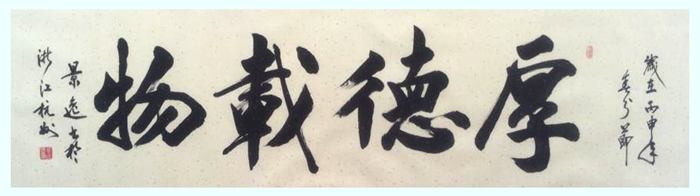 歲在丙申年
春分節
厚德載物
景逸書於
浙江杭州